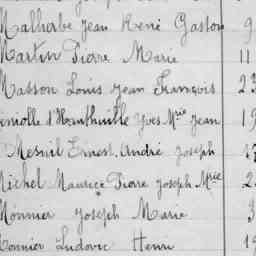 Malherbe Jean René Gaston 9
Martin Pierre Marie 11
Masson Louis Jean François 23
d'Hauthuille Yves Mie Jean 19
Mesnil Ernest André Joseph
Michel Maurice Pierre Joseph Mie 2
Monnier Joseph Marie 3
Monnier Ludovic Henri 19